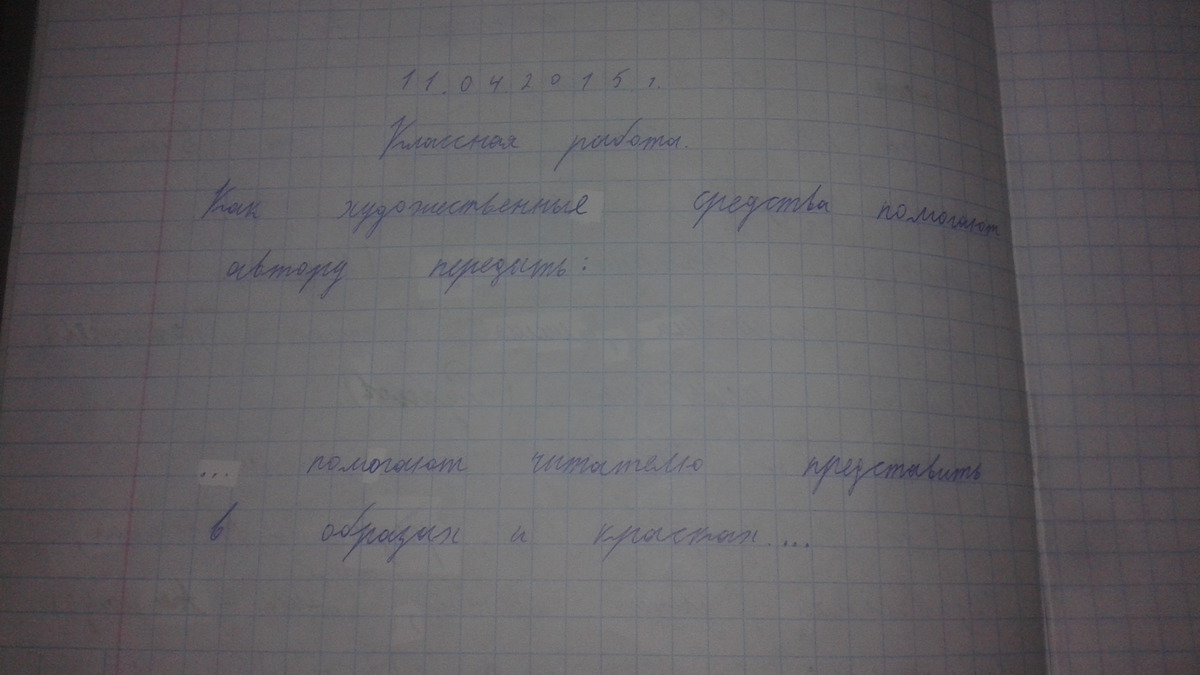 11.04.2015 г.
Классная работа.
Как художественные средства помогают
автору передать:
... помогают читателю представить
в образах и красках....